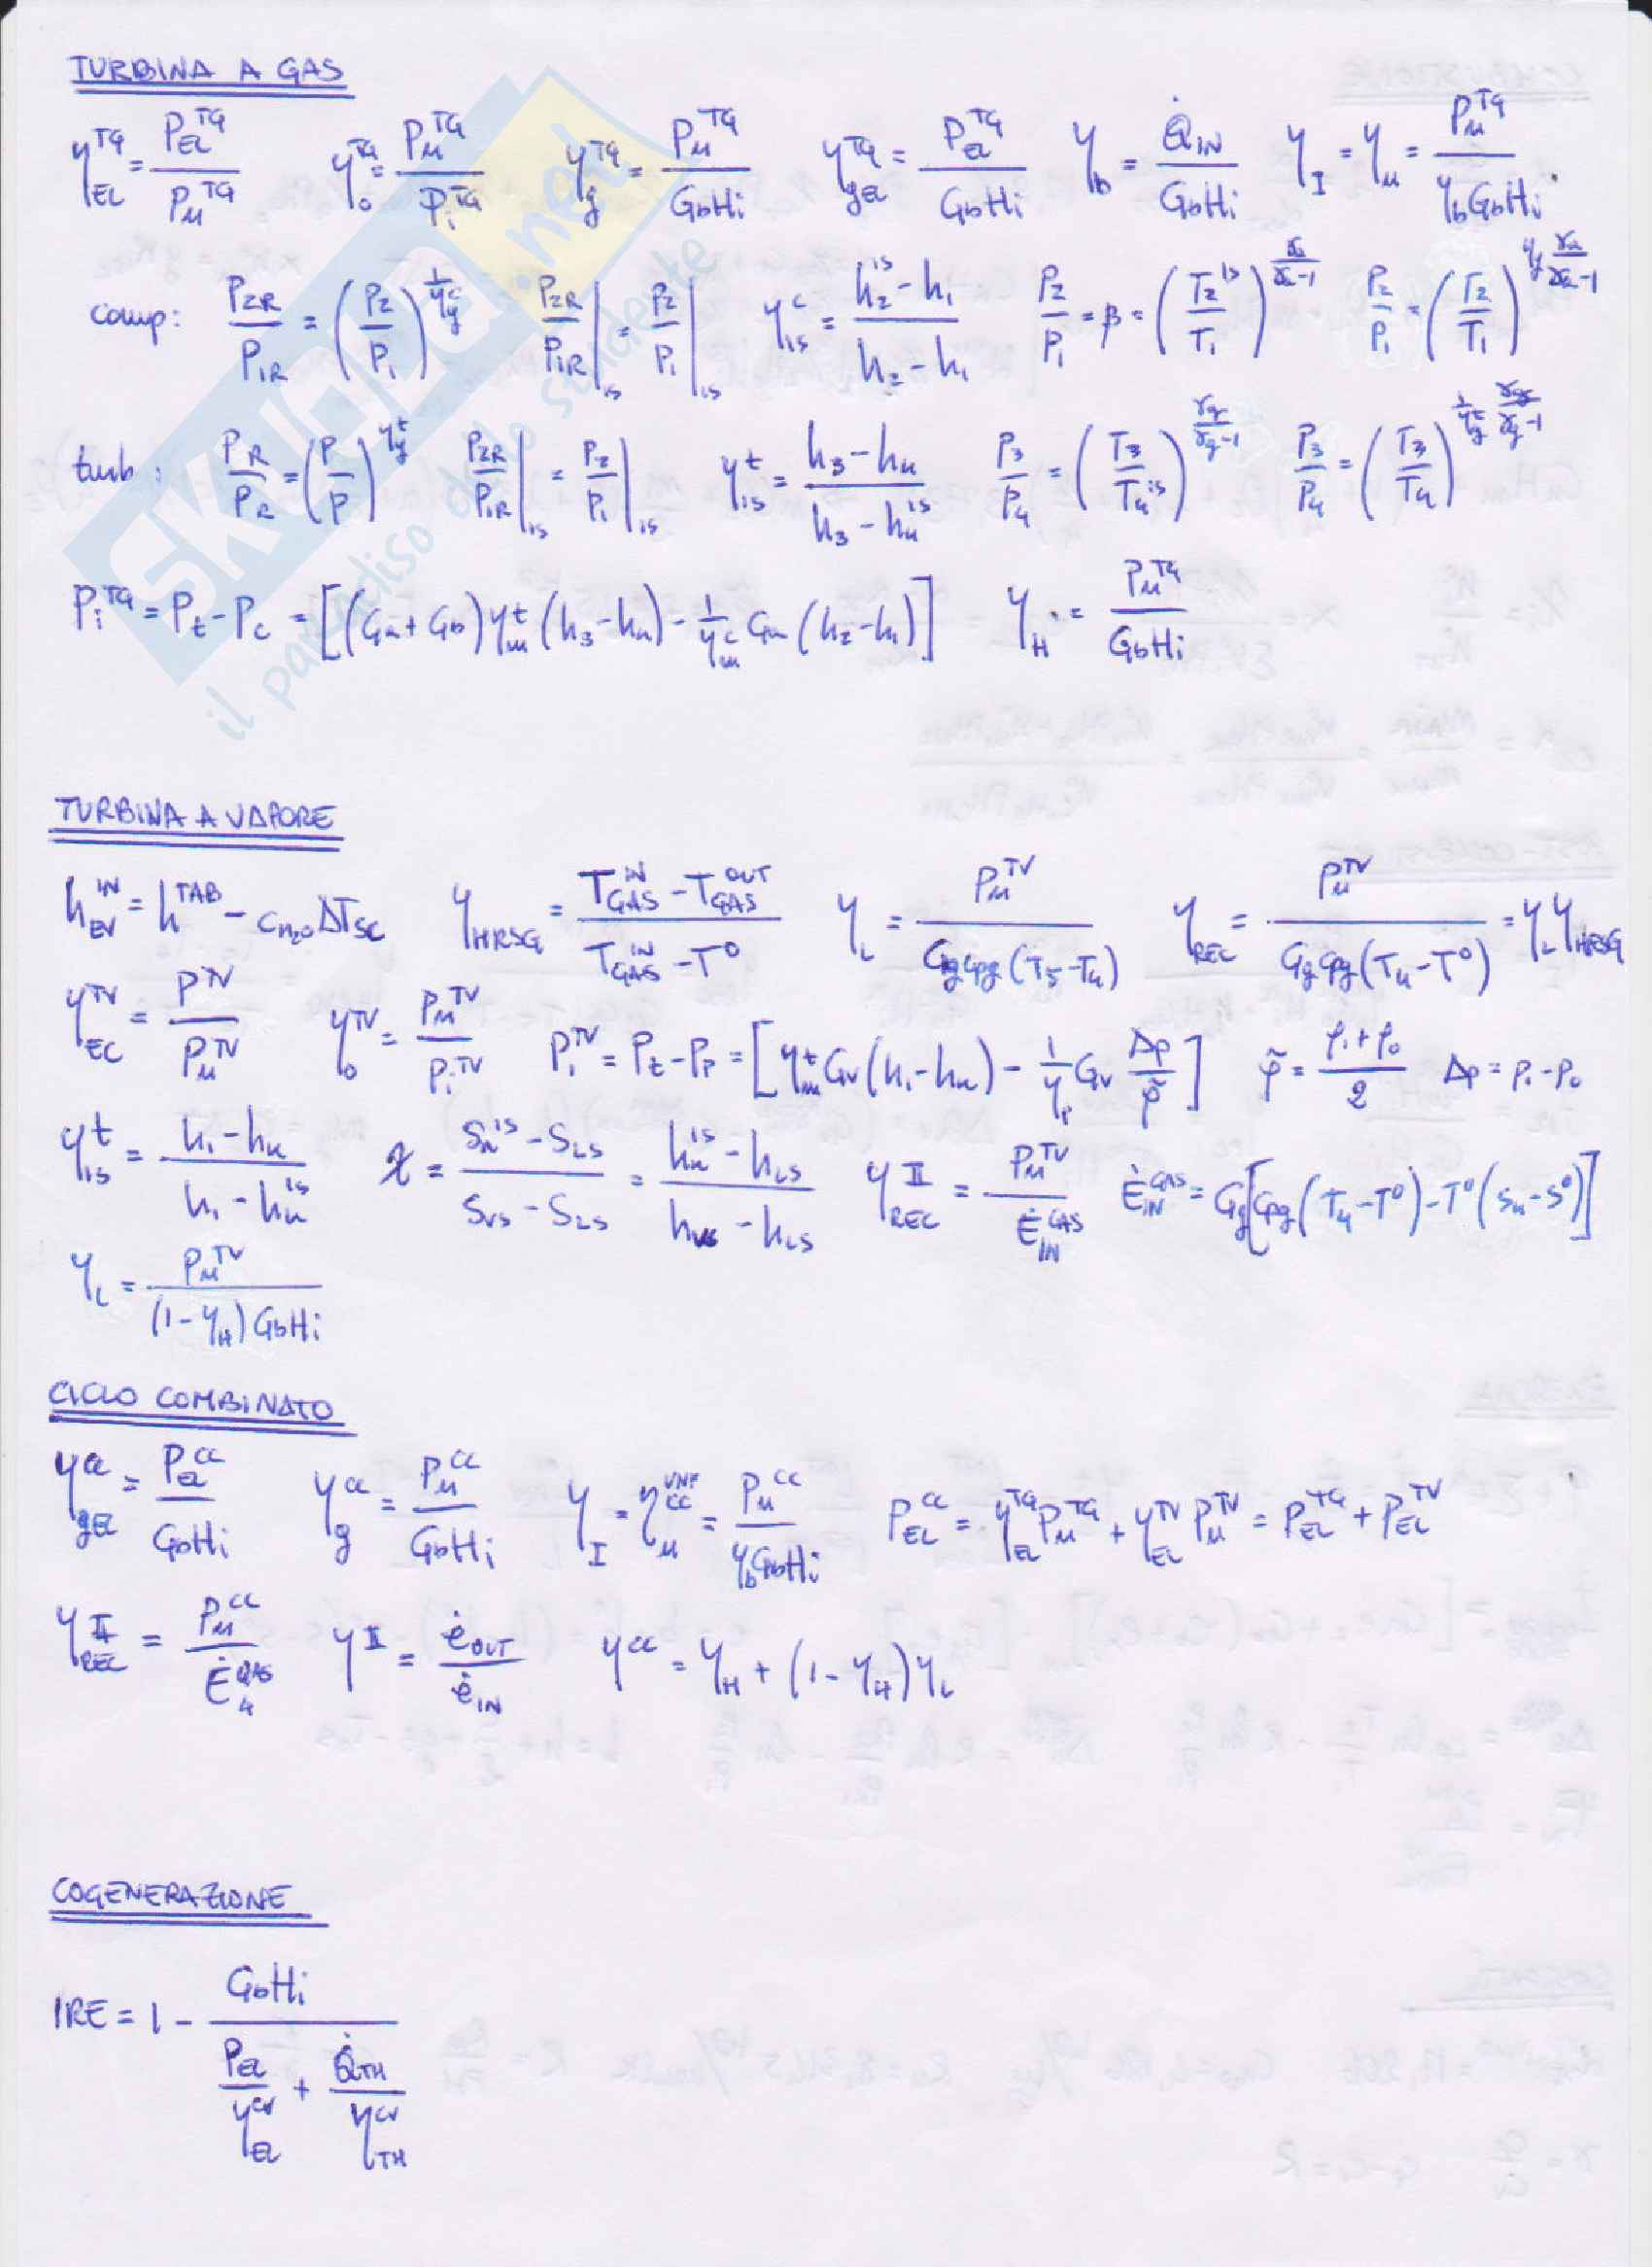 TURBINA A GAS
η_EL^TG = P_EL^TG / P_u^TG   η_o^TG = P_u^TG / P_i^TG   η_g^TG = P_u^TG / GbHi   η_gEL^TG = P_EL^TG / GbHi   η_b = Q̇_IN / GbHi   η_I = η_u = P_u^TG / η_b GbHi
comp: P_2R / P_1R = (P_2 / P_1)^(1/η_y^c)   P_2R / P_1R |_is = P_2 / P_1 |_is   η_is^c = (h_2^is - h_1) / (h_2 - h_1)   P_2 / P_1 = β = (T_2^is / T_1)^(γ_a / (γ_a - 1))   P_2 / P_1 = (T_2 / T_1)^(η_y γ_a / (γ_a - 1))
turb: P_R / P_R = (P / P)^(η_y^t)   P_2R / P_1R |_is = P_2 / P_1 |_is   η_is^t = (h_3 - h_4) / (h_3 - h_4^is)   P_3 / P_4 = (T_3 / T_4^is)^(γ_g / (γ_g - 1))   P_3 / P_4 = (T_3 / T_4)^(1/η_y^t γ_g / (γ_g - 1))
P_i^TG = P_t - P_c = [(Ga + Gb) η_m^t (h_3 - h_4) - 1/η_m^c Ga (h_2 - h_1)]   η_H = P_u^TG / GbHi
SKUOLA.net
il paradiso dello studente
TURBINA A VAPORE
h_EV^IN = h^TAB - c_H2O ΔT_SC   η_HRSG = (T_GAS^IN - T_GAS^OUT) / (T_GAS^IN - T°)   η_L = P_u^TV / Gg cpg (T_5 - T_4)   η_REC = P_u^TV / Gg cpg (T_4 - T°) = η_L η_HRSG
η_EC^TV = P^TV / P_u^TV   η_o^TV = P_u^TV / P_i^TV   P_i^TV = P_t - P_P = [η_m^t Gv (h_1 - h_4) - 1/η_P Gv Δp/ρ̃]   ρ̃ = (ρ_1 + ρ_0) / 2   Δp = p_1 - p_0
η_is^t = (h_1 - h_4) / (h_1 - h_4^is)   χ = (S_4^is - S_LS) / (S_VS - S_LS) = (h_4^is - h_LS) / (h_VS - h_LS)   η_REC^II = P_u^TV / Ė_IN^GAS   Ė_IN^GAS = Gg [cpg (T_4 - T°) - T° (S_4 - S°)]
η_L = P_u^TV / (1 - η_H) GbHi
CICLO COMBINATO
η_gEL^CC = P_EL^CC / GbHi   η_g^CC = P_u^CC / GbHi   η_I = η_u^CC = P_u^CC / η_b GbHi   P_EL^CC = η_EL^TG P_u^TG + η_EL^TV P_u^TV = P_EL^TG + P_EL^TV
η_REC^II = P_u^CC / Ė_4^GAS   η^II = ė_OUT / ė_IN   η^CC = η_H + (1 - η_H) η_L
COGENERAZIONE
IRE = 1 - GbHi / (P_EL / η_EL^CV + Q̇_TH / η_TH^CV)